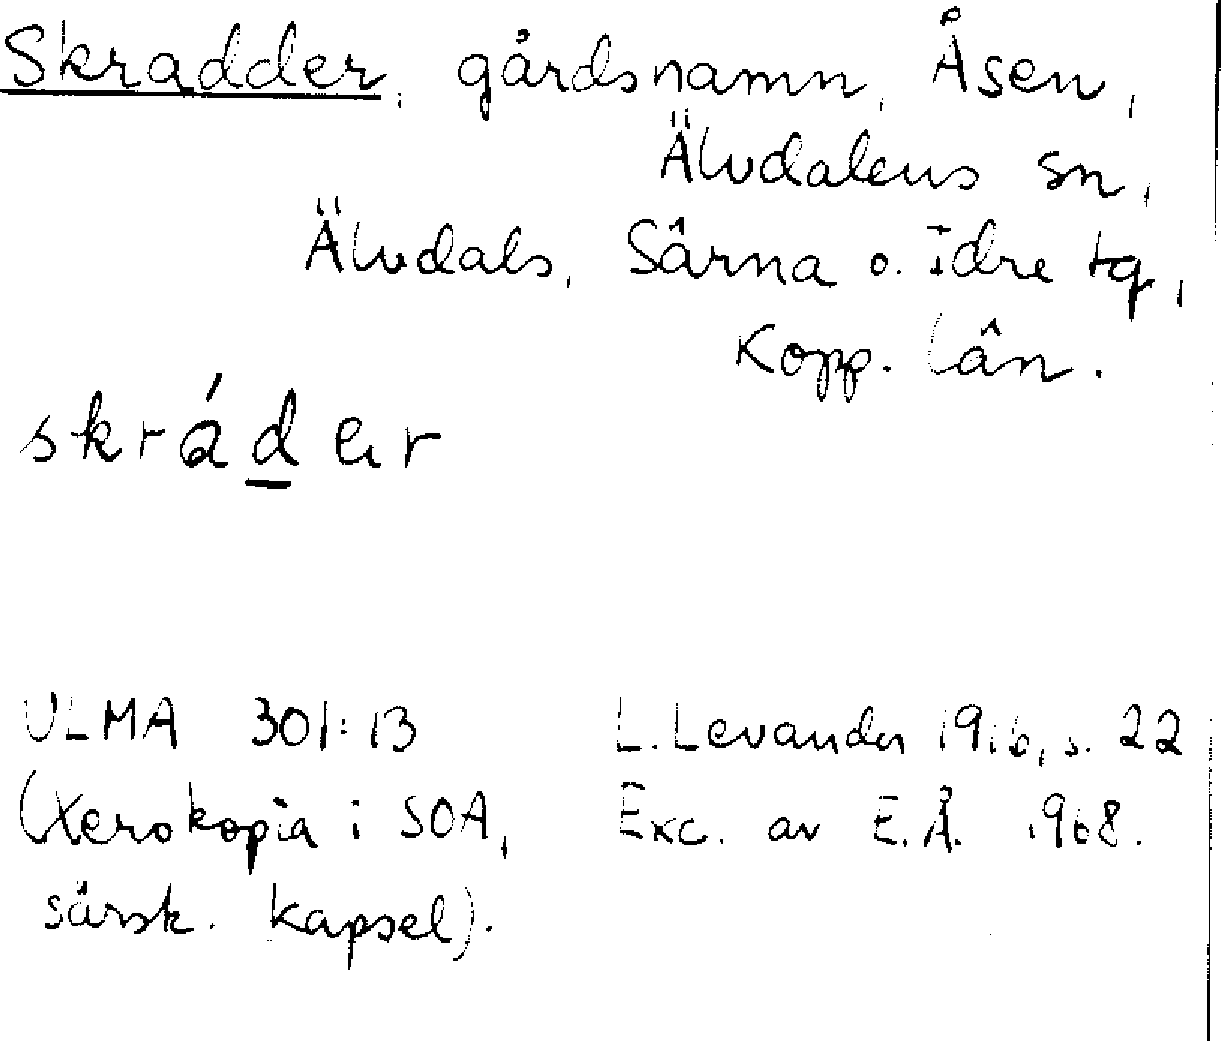 Skradder, gårdsnamn, Åsen,
Älvdalens sn,
Älvdals, Särna o. Idre tg,
Kopp. län.
skrád̲er
ULMA 301:13
(Xerokopia i SOA,
särsk. kapsel).
L. Levander 1916, s. 22
Exc. av E.Å. 1968.